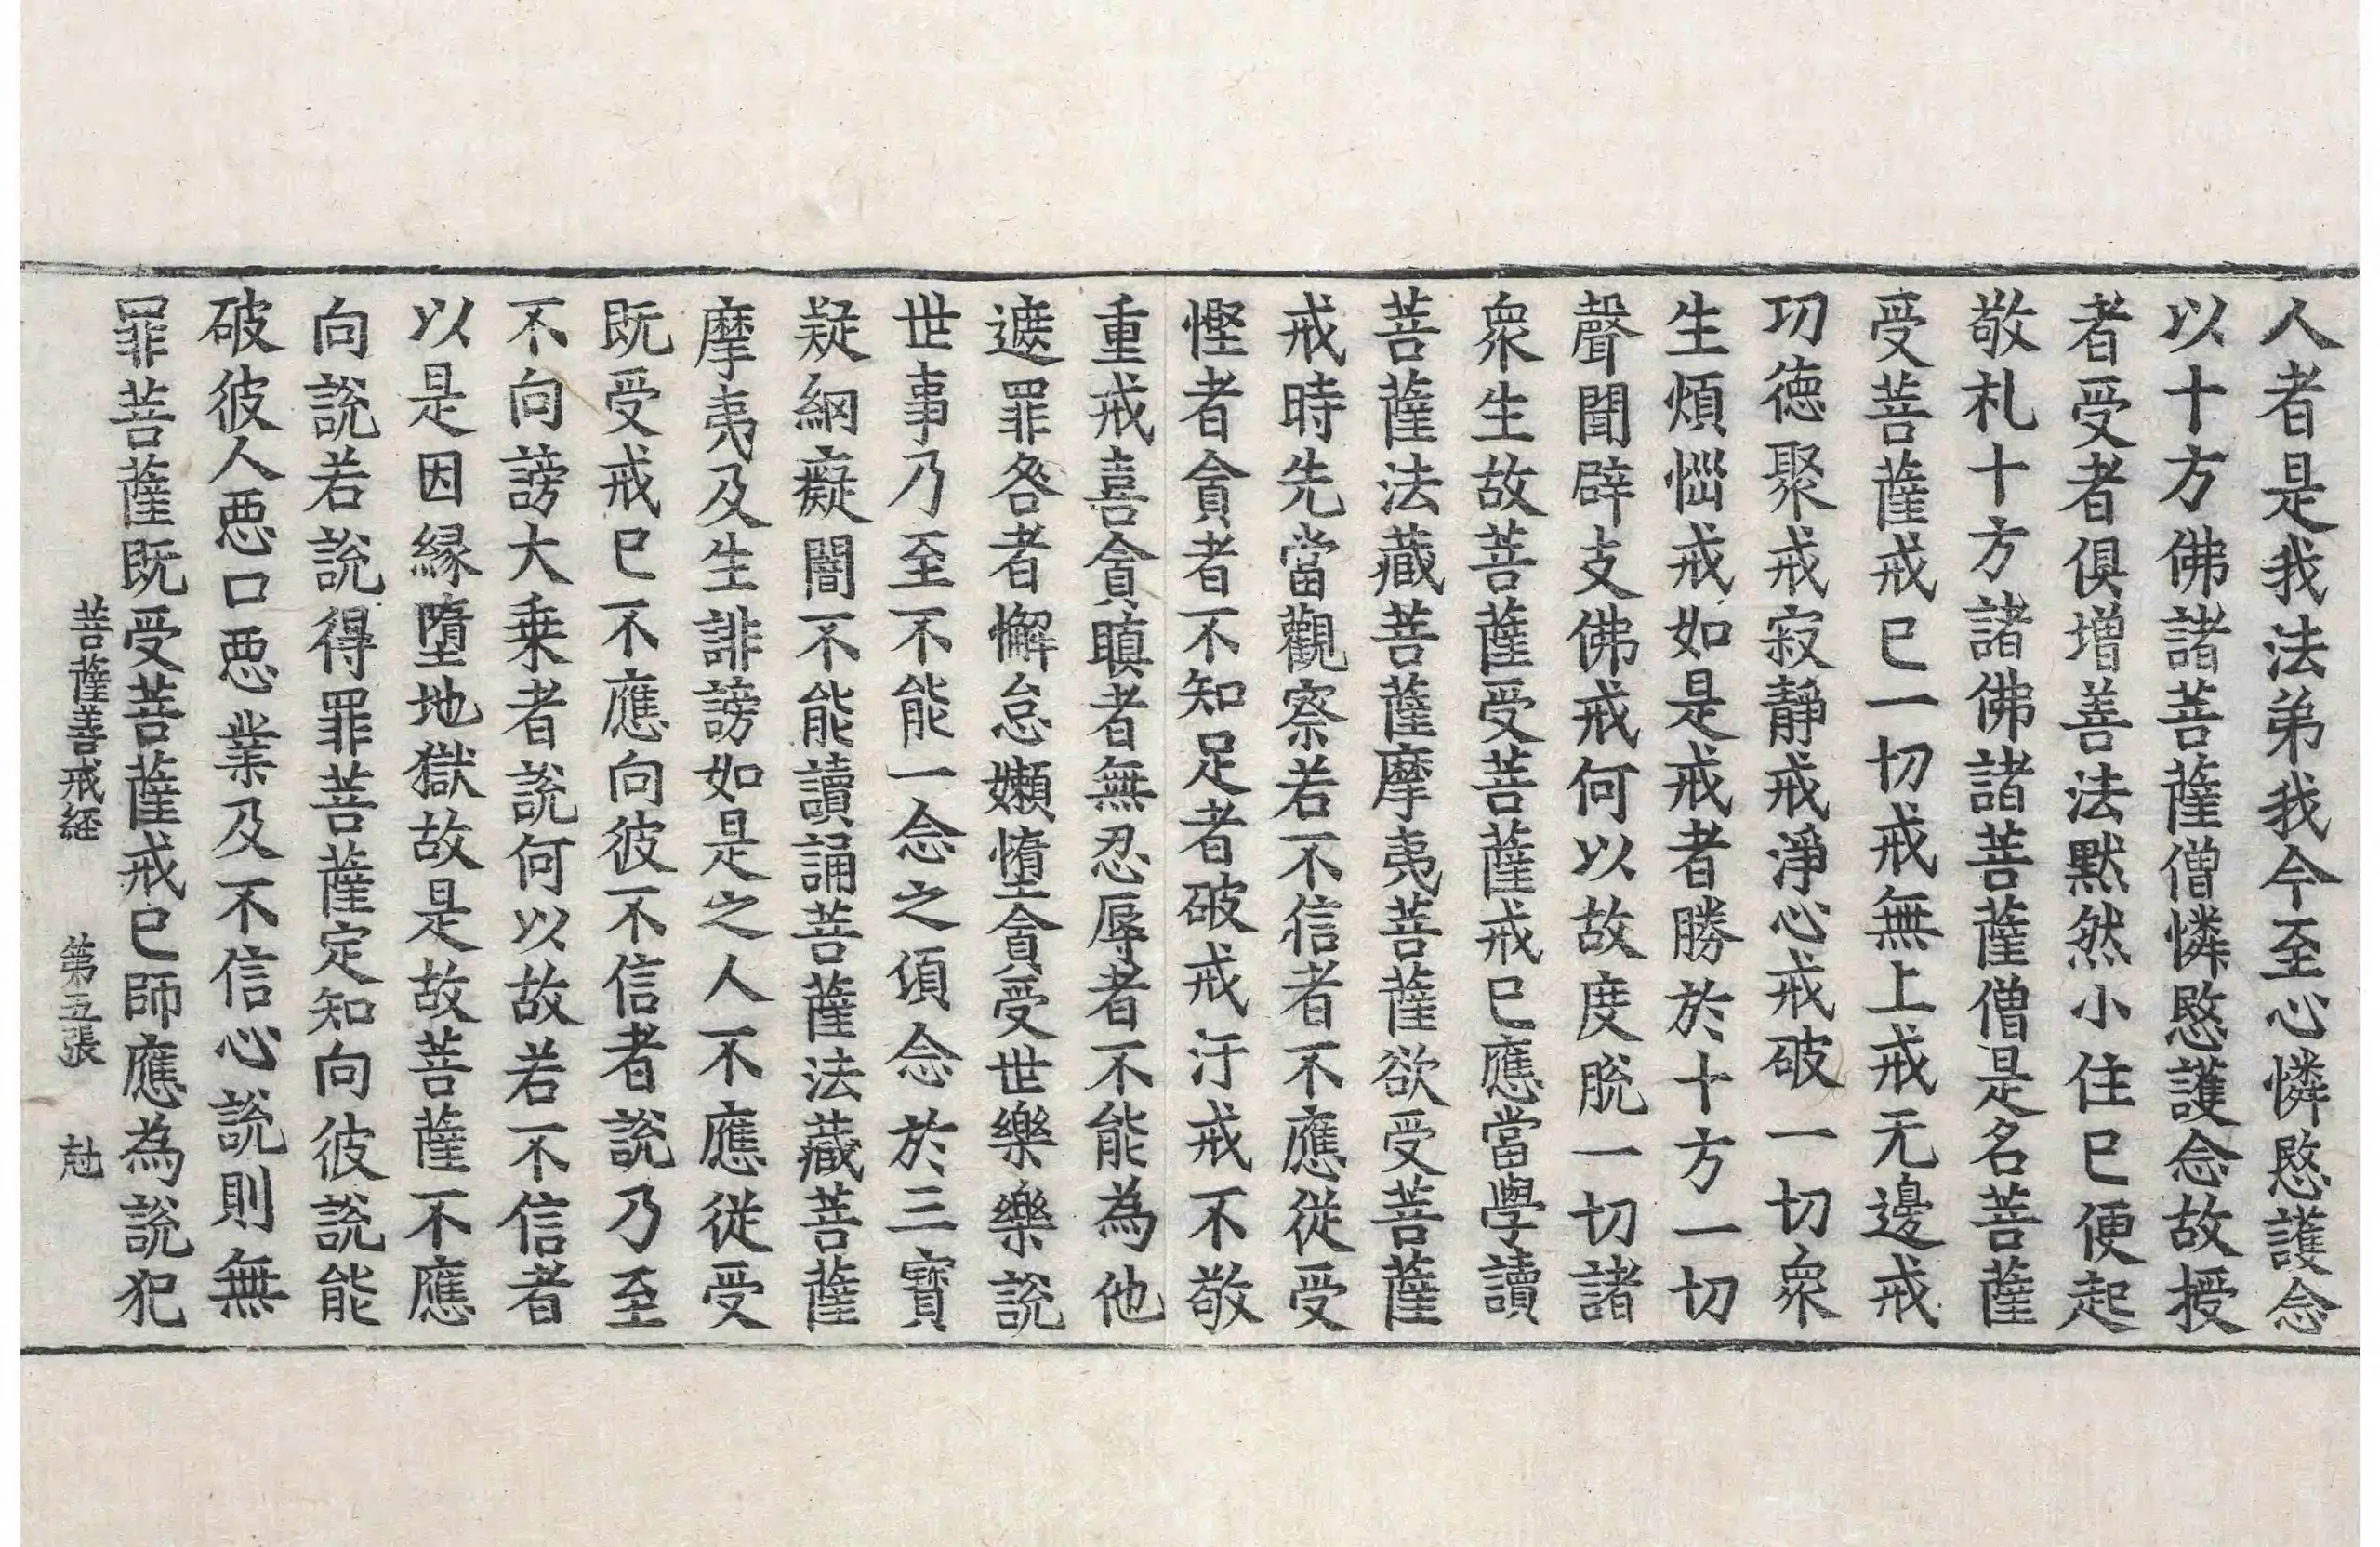 人者是我法弟我今至心憐愍護念
以十方佛諸菩薩僧憐愍護念故授
者受者俱增善法默然小住已便起
敬札十方諸佛諸菩薩僧是名菩薩
受菩薩戒已一切戒無上戒无邊戒
功德聚戒寂靜戒淨心戒破一切衆
生煩惱戒如是戒者勝於十方一切
聲聞辟支佛戒何以故度脫一切諸
衆生故菩薩受菩薩戒已應當學讀
菩薩法藏菩薩摩夷菩薩欲受菩薩
戒時先當觀察若不信者不應從受
慳者貪者不知足者破戒汙戒不敬
重戒喜貪瞋者無忍辱者不能為他
遮罪咎者懈怠嬾惰貪受世樂樂說
世事乃至不能一念之頃念於三寶
疑網癡闇不能讀誦菩薩法藏菩薩
摩夷及生誹謗如是之人不應從受
既受戒已不應向彼不信者說乃至
不向謗大乘者說何以故若不信者
以是因緣墮地獄故是故菩薩不應
向說若說得罪菩薩定知向彼說能
破彼人惡口惡業及不信心說則無
罪菩薩既受菩薩戒已師應為說犯
菩薩善戒經 第五張